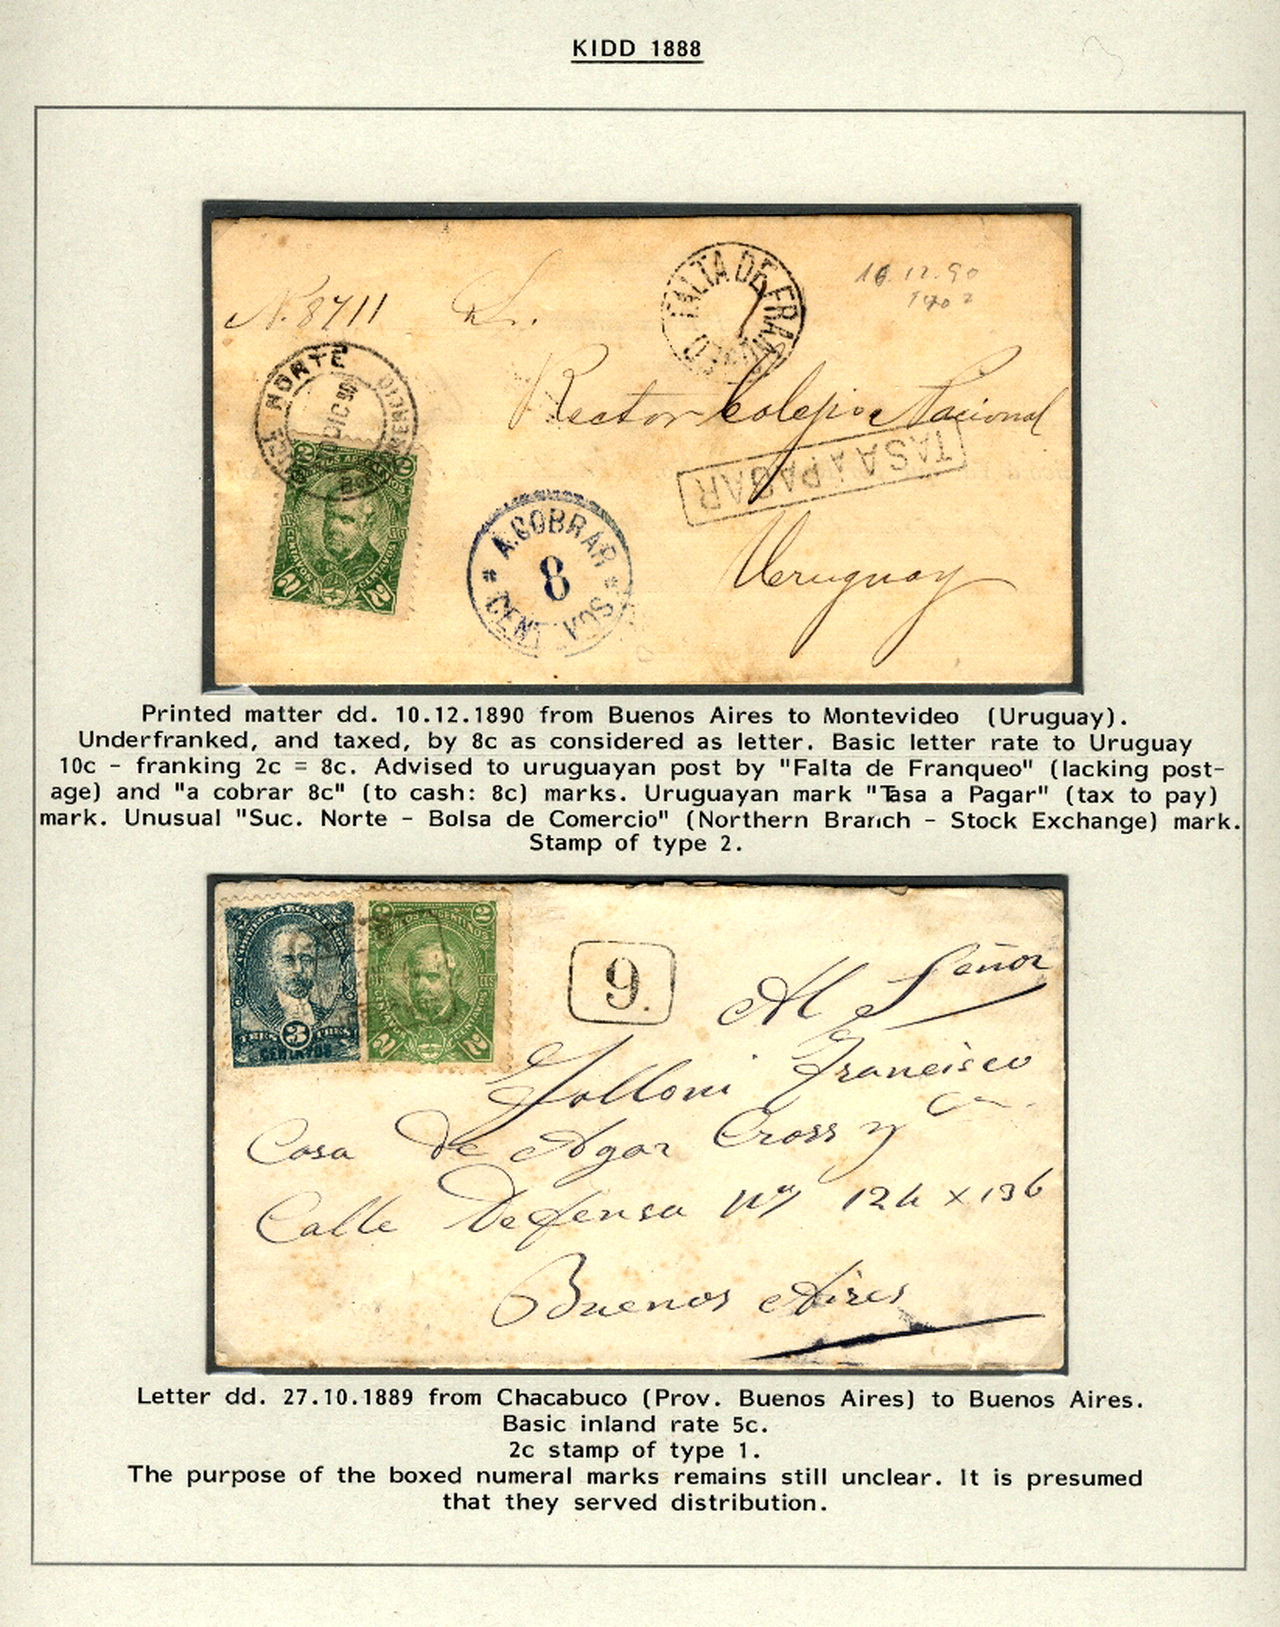 KIDD 1888
N. 8711
FALTA DE FRANQUEO
10.12.90
NORTE
DIC 90
Rector Colegio Nacional
TASA A PAGAR
A COBRAR
8
CENT
Uruguay
CORREOS ARGENTINOS
2 CENTAVOS CENTAVOS 2
Printed matter dd. 10.12.1890 from Buenos Aires to Montevideo (Uruguay).
Underfranked, and taxed, by 8c as considered as letter. Basic letter rate to Uruguay
10c - franking 2c = 8c. Advised to uruguayan post by "Falta de Franqueo" (lacking post-
age) and "a cobrar 8c" (to cash: 8c) marks. Uruguayan mark "Tasa a Pagar" (tax to pay)
mark. Unusual "Suc. Norte - Bolsa de Comercio" (Northern Branch - Stock Exchange) mark.
Stamp of type 2.
CORREOS ARGENTINOS
TRES 3 TRES
CENTAVOS
2 CORREOS ARGENTINOS 2
2 CENTAVOS CENTAVOS 2
9.
Al Señor
Francisco
Casa de Agar Cross y Ca.
Calle Defensa 124 x 136
Buenos Aires
Letter dd. 27.10.1889 from Chacabuco (Prov. Buenos Aires) to Buenos Aires.
Basic inland rate 5c.
2c stamp of type 1.
The purpose of the boxed numeral marks remains still unclear. It is presumed
that they served distribution.